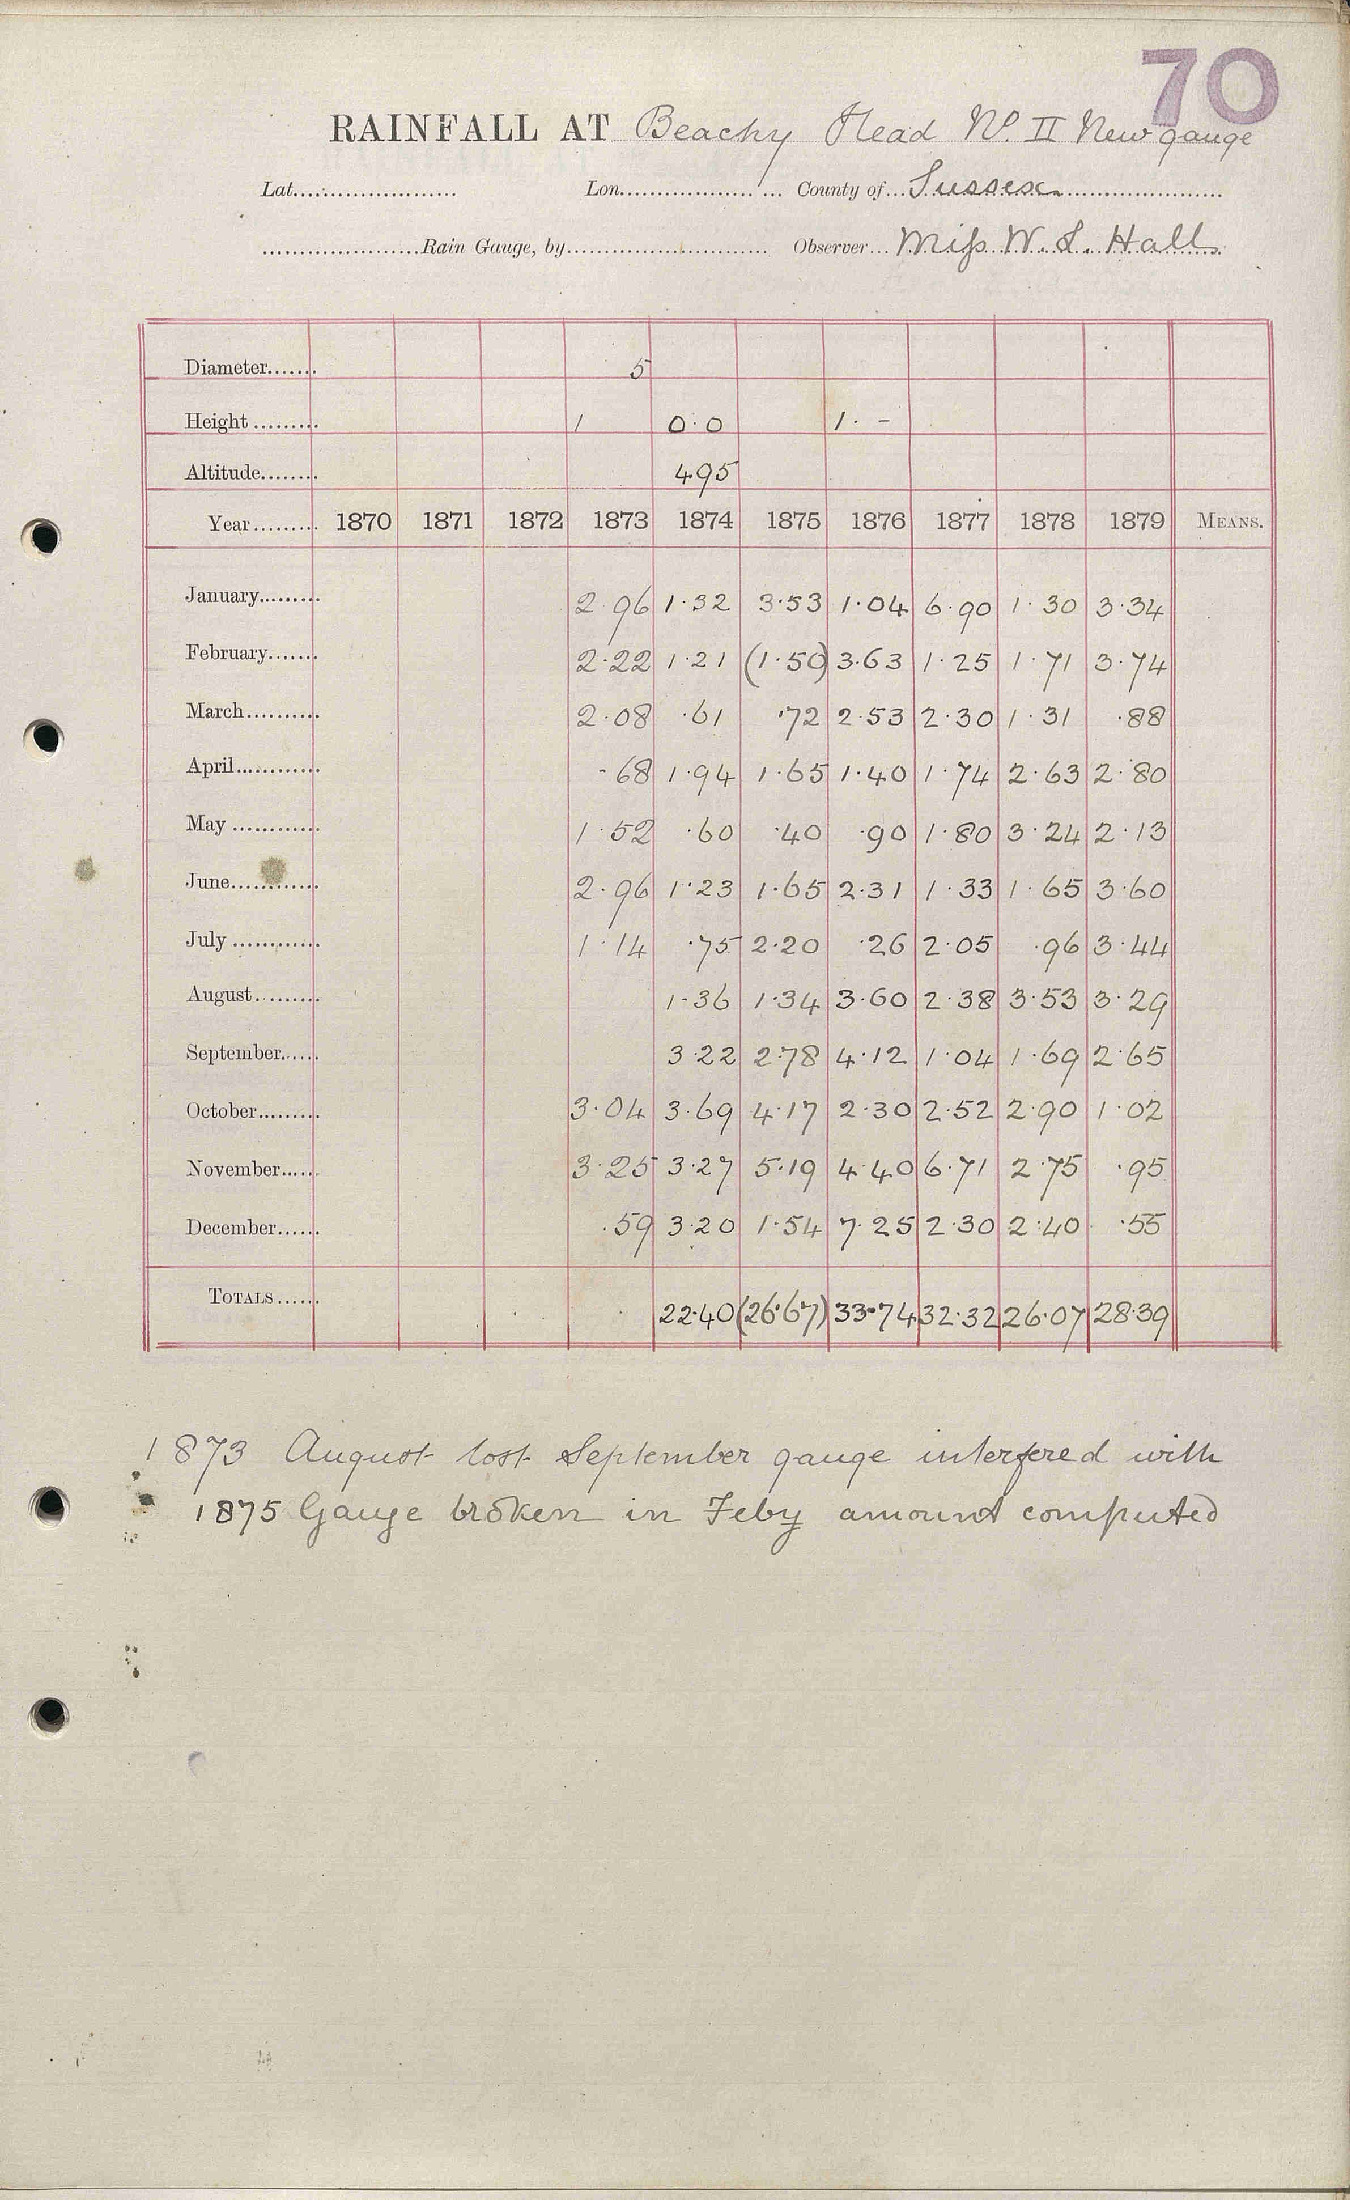 70
RAINFALL AT Beachy Head No. II New gauge
Lat. Lon. County of Sussex
Rain Gauge, by Observer Miss W. L. Hall
Diameter 5
Height 1 0.0 1. -
Altitude 495
Year 1870 1871 1872 1873 1874 1875 1876 1877 1878 1879 MEANS.
January 2.96 1.32 3.53 1.04 6.90 1.30 3.34
February 2.22 1.21 (1.50) 3.63 1.25 1.71 3.74
March 2.08 .61 .72 2.53 2.30 1.31 .88
April .68 1.94 1.65 1.40 1.74 2.63 2.80
May 1.52 .60 .40 .90 1.80 3.24 2.13
June 2.96 1.23 1.65 2.31 1.33 1.65 3.60
July 1.14 .75 2.20 .26 2.05 .96 3.44
August 1.36 1.34 3.60 2.38 3.53 3.29
September 3.22 2.78 4.12 1.04 1.69 2.65
October 3.04 3.69 4.17 2.30 2.52 2.90 1.02
November 3.25 3.27 5.19 4.40 6.71 2.75 .95
December .59 3.20 1.54 7.25 2.30 2.40 .55
TOTALS 22.40 (26.67) 33.74 32.32 26.07 28.39
1873 August lost September gauge interfered with
1875 Gauge broken in Feby amount computed